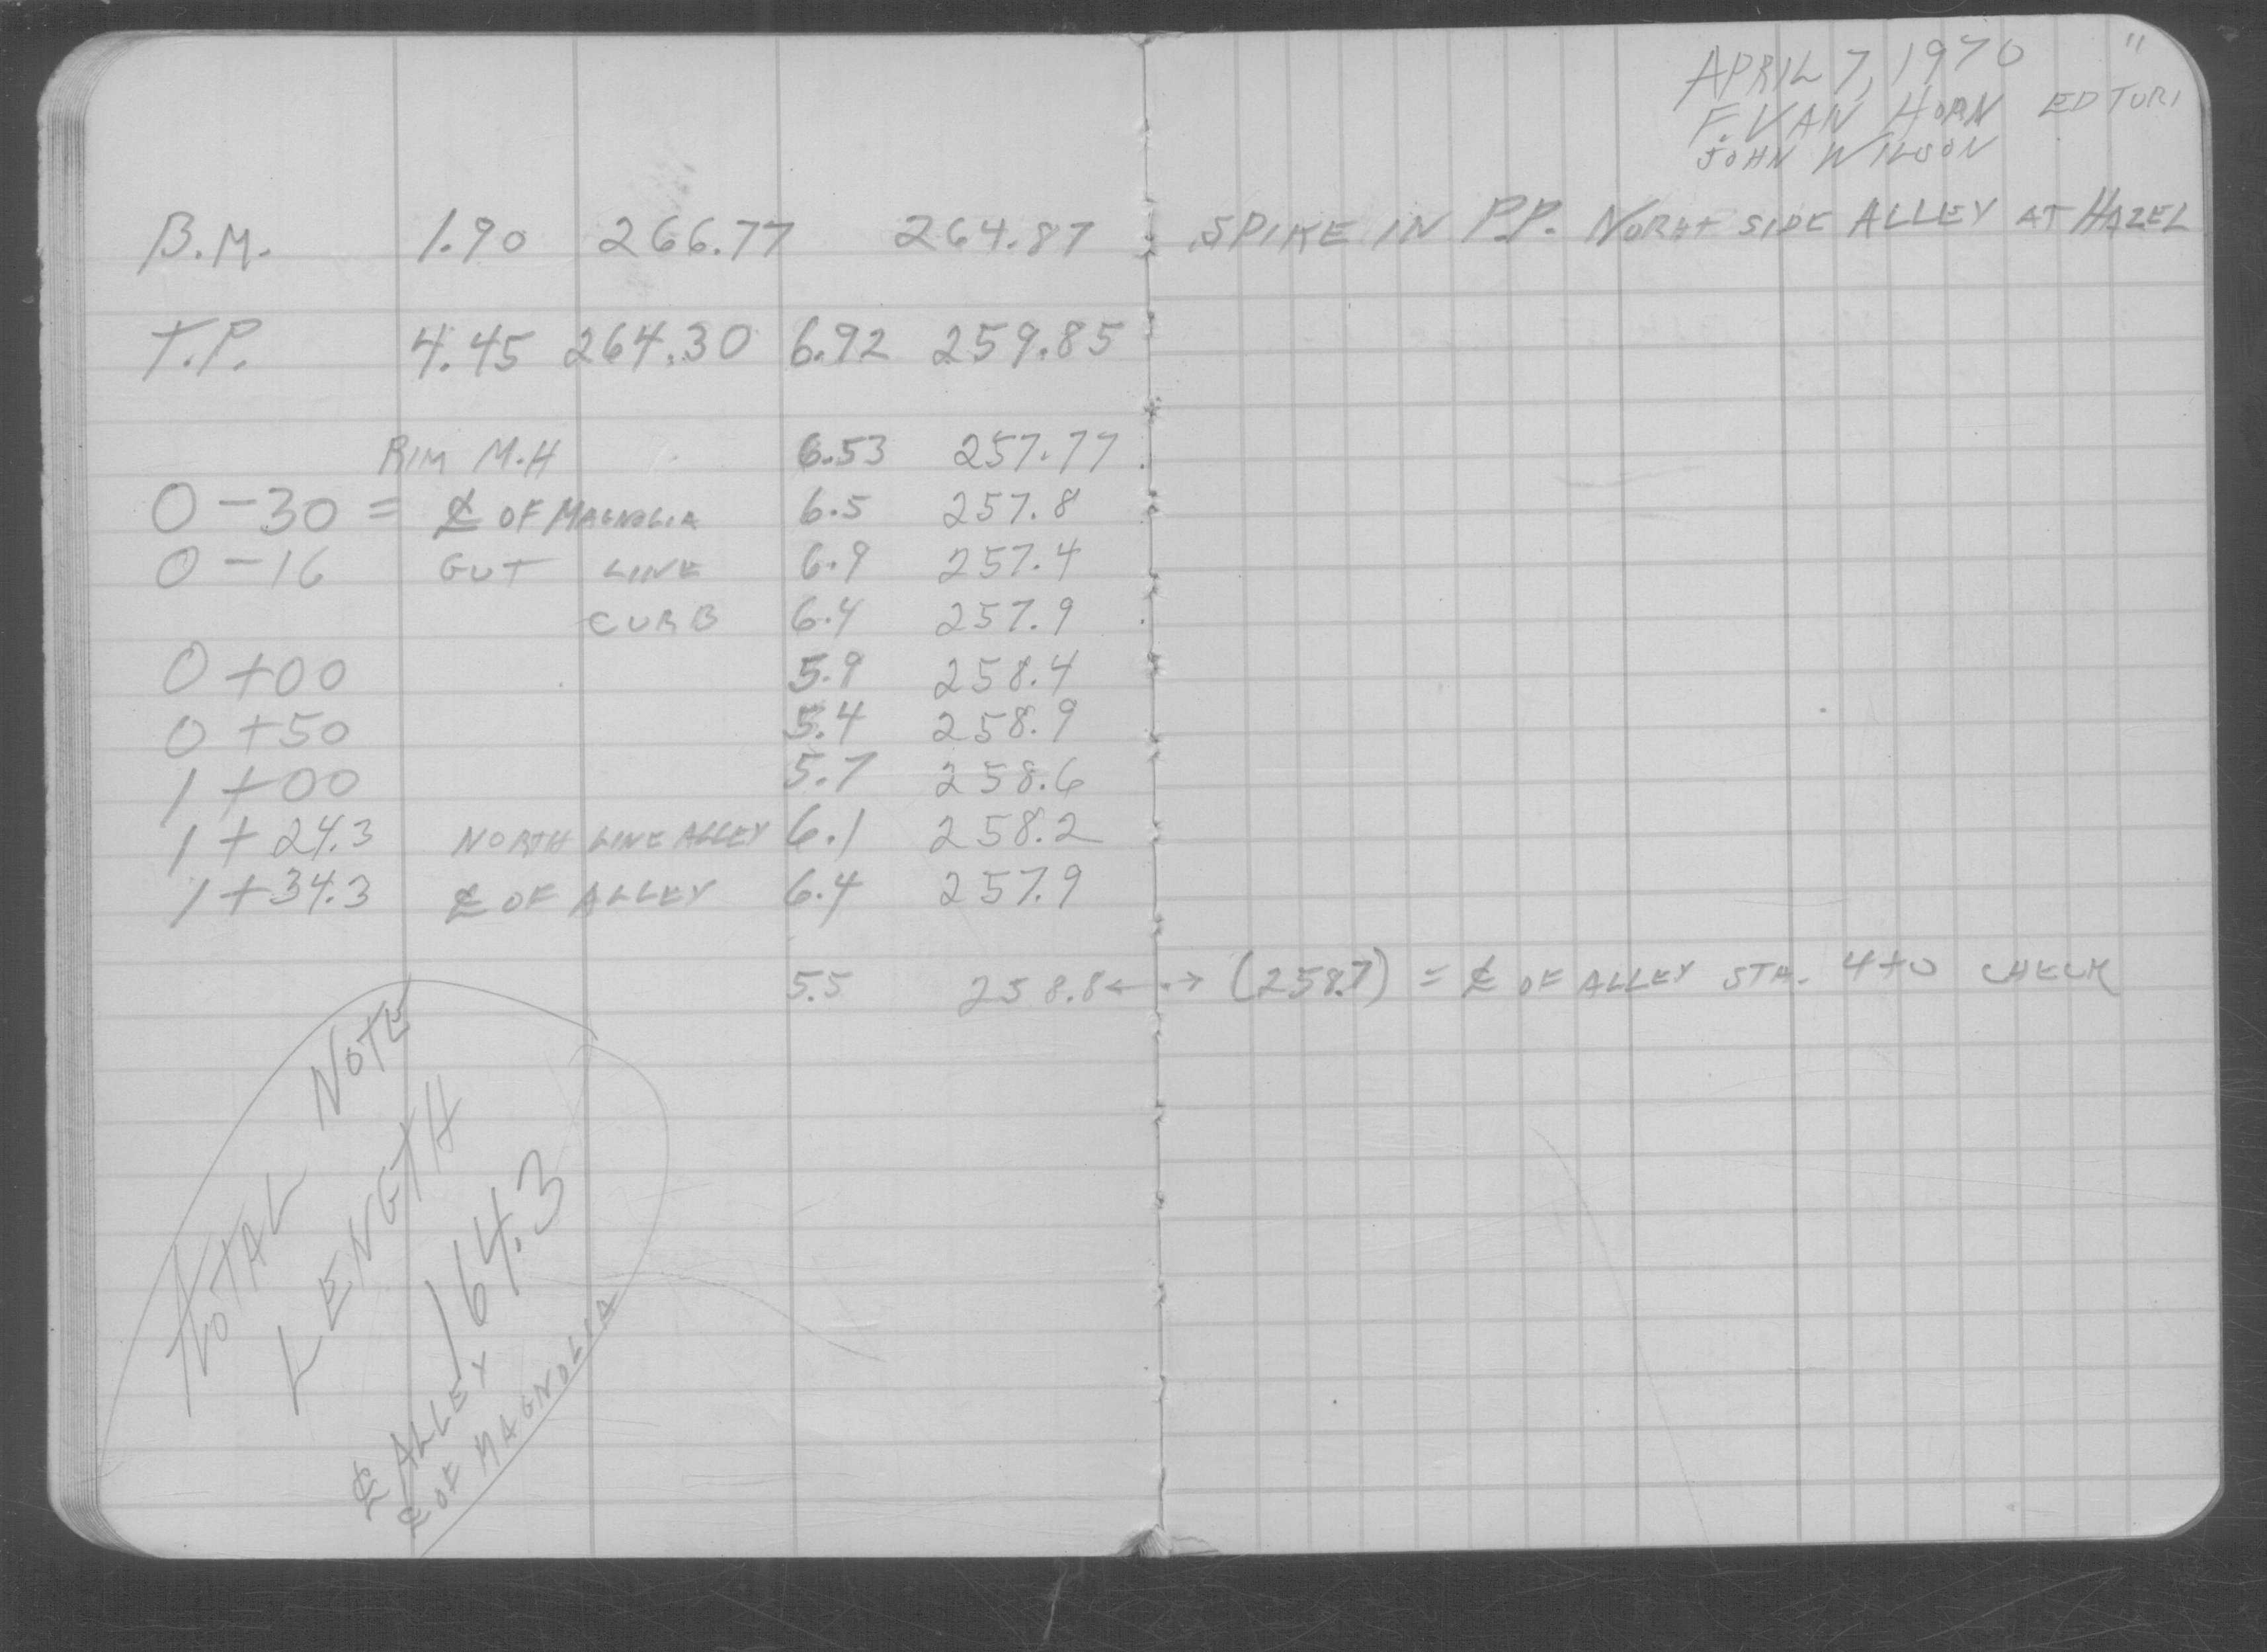 B.M. 1.90 266.77 264.87
T.P. 4.45 264.30 6.92 259.85
RIM M.H 6.53 257.77
0-30 = ℄ OF MAGNOLIA 6.5 257.8
0-16 GUT LINE 6.9 257.4
CURB 6.4 257.9
0+00 5.9 258.4
0+50 5.4 258.9
1+00 5.7 258.6
1+24.3 NORTH LINE ALLEY 6.1 258.2
1+34.3 ℄ OF ALLEY 6.4 257.9
5.5 258.8 ← → (258.7) = ℄ OF ALLEY STA. 4+0 CHECK
NOTE
TOTAL
LENGTH
164.3
℄ ALLEY
℄ OF MAGNOLIA
APRIL 7, 1970 "
F. VAN HORN ED TURI
JOHN WILSON
SPIKE IN P.P. NORTH SIDE ALLEY AT HAZEL